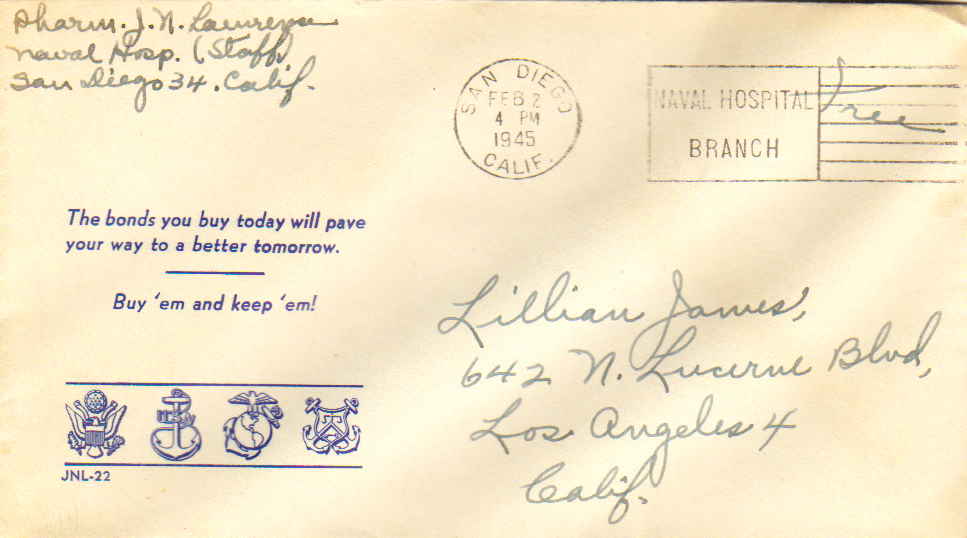 Pharm. J. N. Laurens
Naval Hosp. (Staff)
San Diego 34. Calif.
SAN DIEGO
FEB 2
4 PM
1945
CALIF.
NAVAL HOSPITAL
BRANCH
Free
The bonds you buy today will pave
your way to a better tomorrow.
Buy 'em and keep 'em!
Lillian James,
642 N. Lucerne Blvd,
Los Angeles 4
Calif.
USN
JNL-22